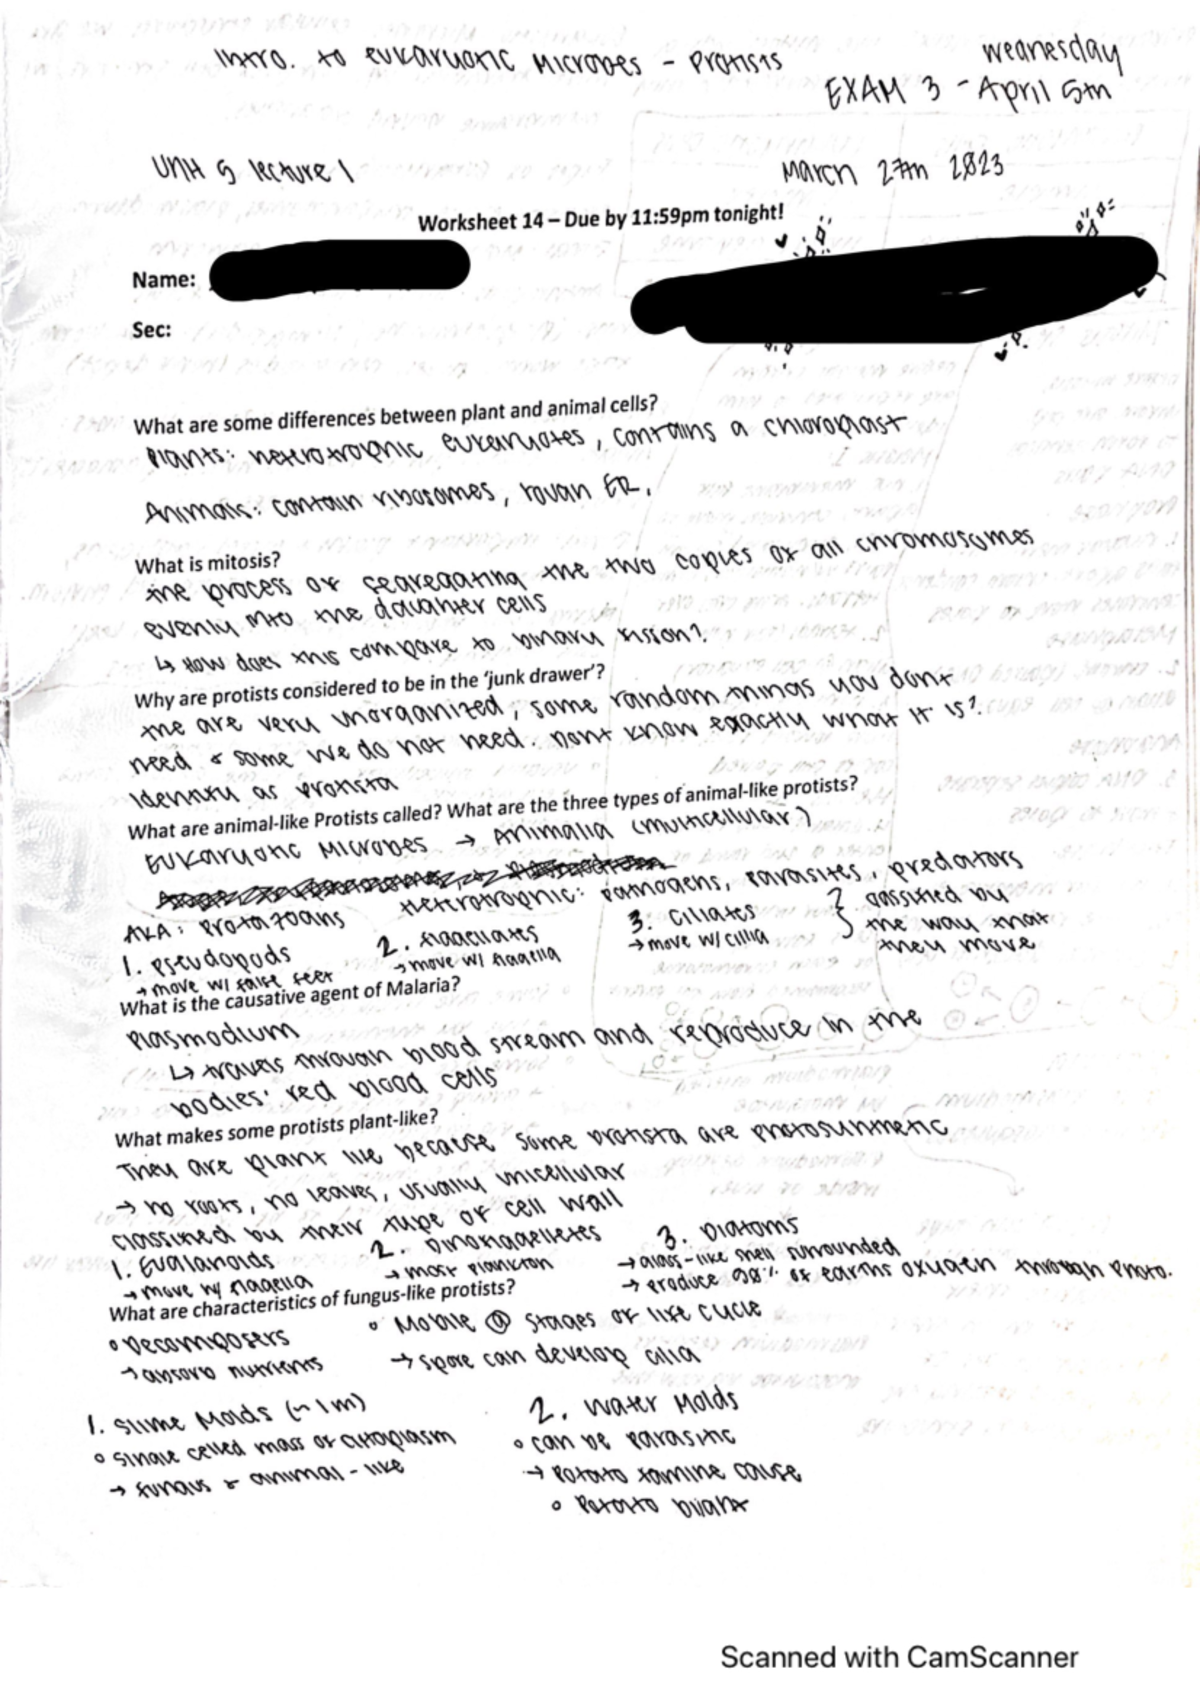 Intro. to eukaryotic Microbes - Protists
wednesday
EXAM 3 - April 5th
Unit 5 lecture 1
March 27th 2023
Worksheet 14 – Due by 11:59pm tonight!
Name:
Sec:
What are some differences between plant and animal cells?
Plants: heterotrophic eukaryotes, contains a chloroplast
Animals: contain ribosomes, rough ER.
What is mitosis?
the process of segregating the two copies of all chromosomes
evenly into the daughter cells
↳ How does this compare to binary fission?
Why are protists considered to be in the ‘junk drawer’?
the are very unorganized, some random things you dont
need & some we do not need. Dont know exactly what it is?
Identify as protista
What are animal-like Protists called? What are the three types of animal-like protists?
Eukaryotic Microbes → Animalia (multicellular?)
Heterotrophic: pathogens, parasites, predators
AKA: Protozoans
1. Pseudopods
→ move w/ false feet
2. flagellates
→ move w/ flagella
3. Ciliates
→ move w/ cillia
} classified by
the way that
they move
What is the causative agent of Malaria?
Plasmodium
↳ travels through blood stream and reproduce in the
bodies' red blood cells
What makes some protists plant-like?
They are plant like because some protista are photosynthetic
→ no roots, no leaves, usually unicellular
classified by their type of cell wall
1. Euglanoids
→ move w/ flagella
2. Dinoflagelletes
→ most plankton
3. Diatoms
→ glass-like shell surrounded
→ produce 90% of earths oxygen through Photo.
What are characteristics of fungus-like protists?
° Decomposers
→ absorb nutrients
° Mobile @ stages of life cycle
→ spore can develop cilia
1. Slime Molds (~1m)
° single celled mass of cytoplasm
→ fungus & animal-like
2. Water Molds
° can be parasitic
→ Potato famine cause
° Potato blight
Scanned with CamScanner